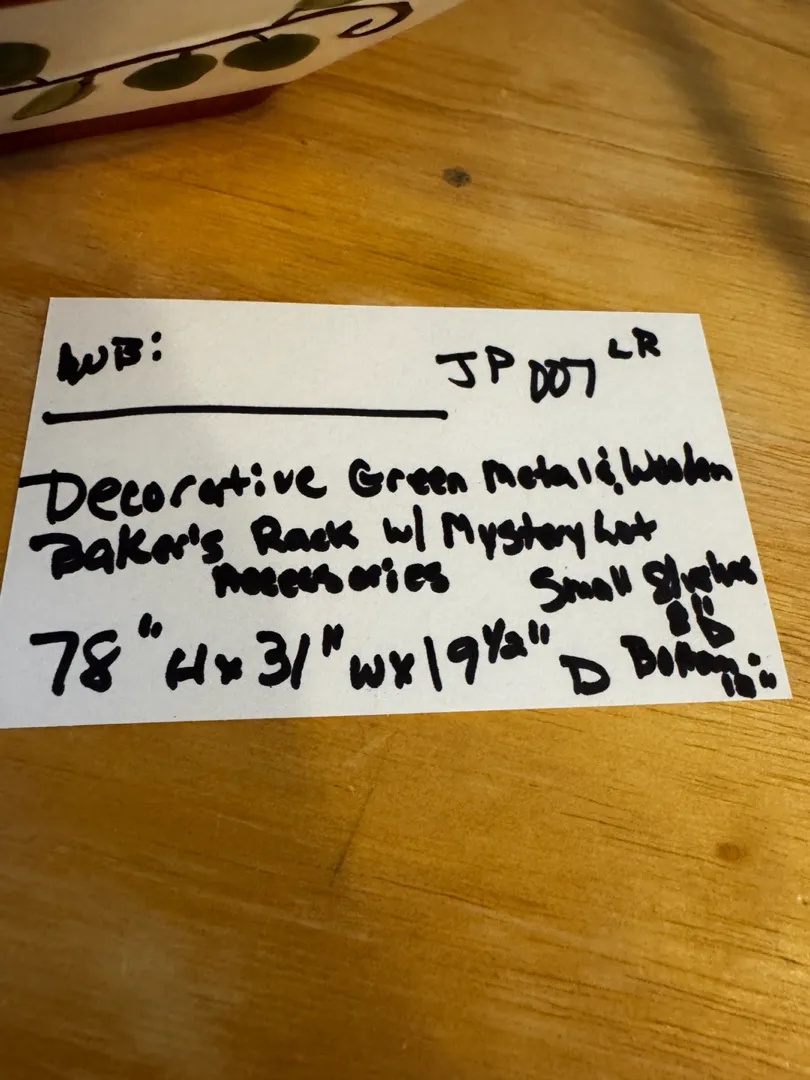 WB: JP 007 LR
Decorative Green Metal & Wooden
Baker's Rack w/ Mystery Lot
Accessories Small Shelves
78" H x 31" W x 19 1/2" D Bottom: